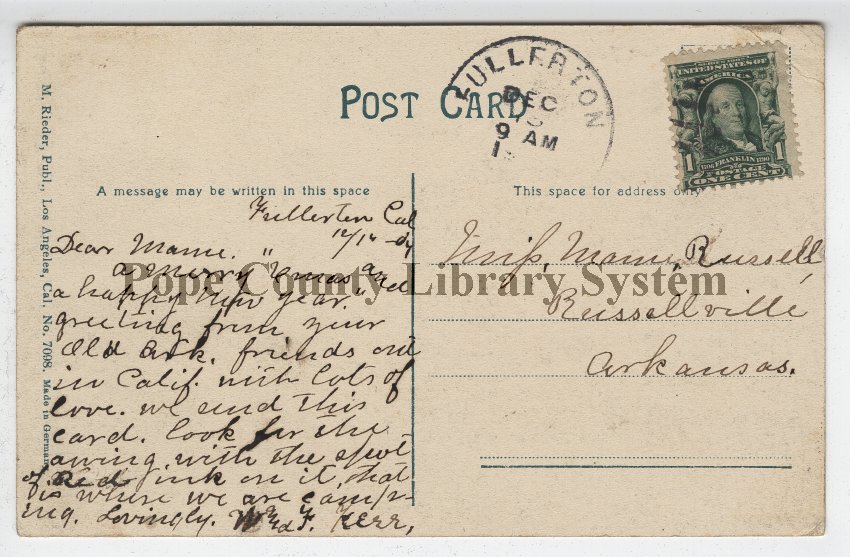 M. Rieder, Publ., Los Angeles, Cal. No. 7098. Made in Germany
POST CARD
FULLERTON
DEC
9 AM
UNITED STATES OF
AMERICA
1 1
FRANKLIN
POSTAGE
ONE CENT
A message may be written in this space
This space for address only
Fullerton Cal
Dear Mame. "
a merry Xmas and
a happy new year."
greeting from your
Old Ark. friends out
in Calif. with lots of
love. we send this
card. look for the
awing with the spot
of Red ink on it, that
is where we are camp-
ing. Lovingly.
Kerr,
Miss, Mame, Russell,
Russellville
Arkansas.
Pope County Library System